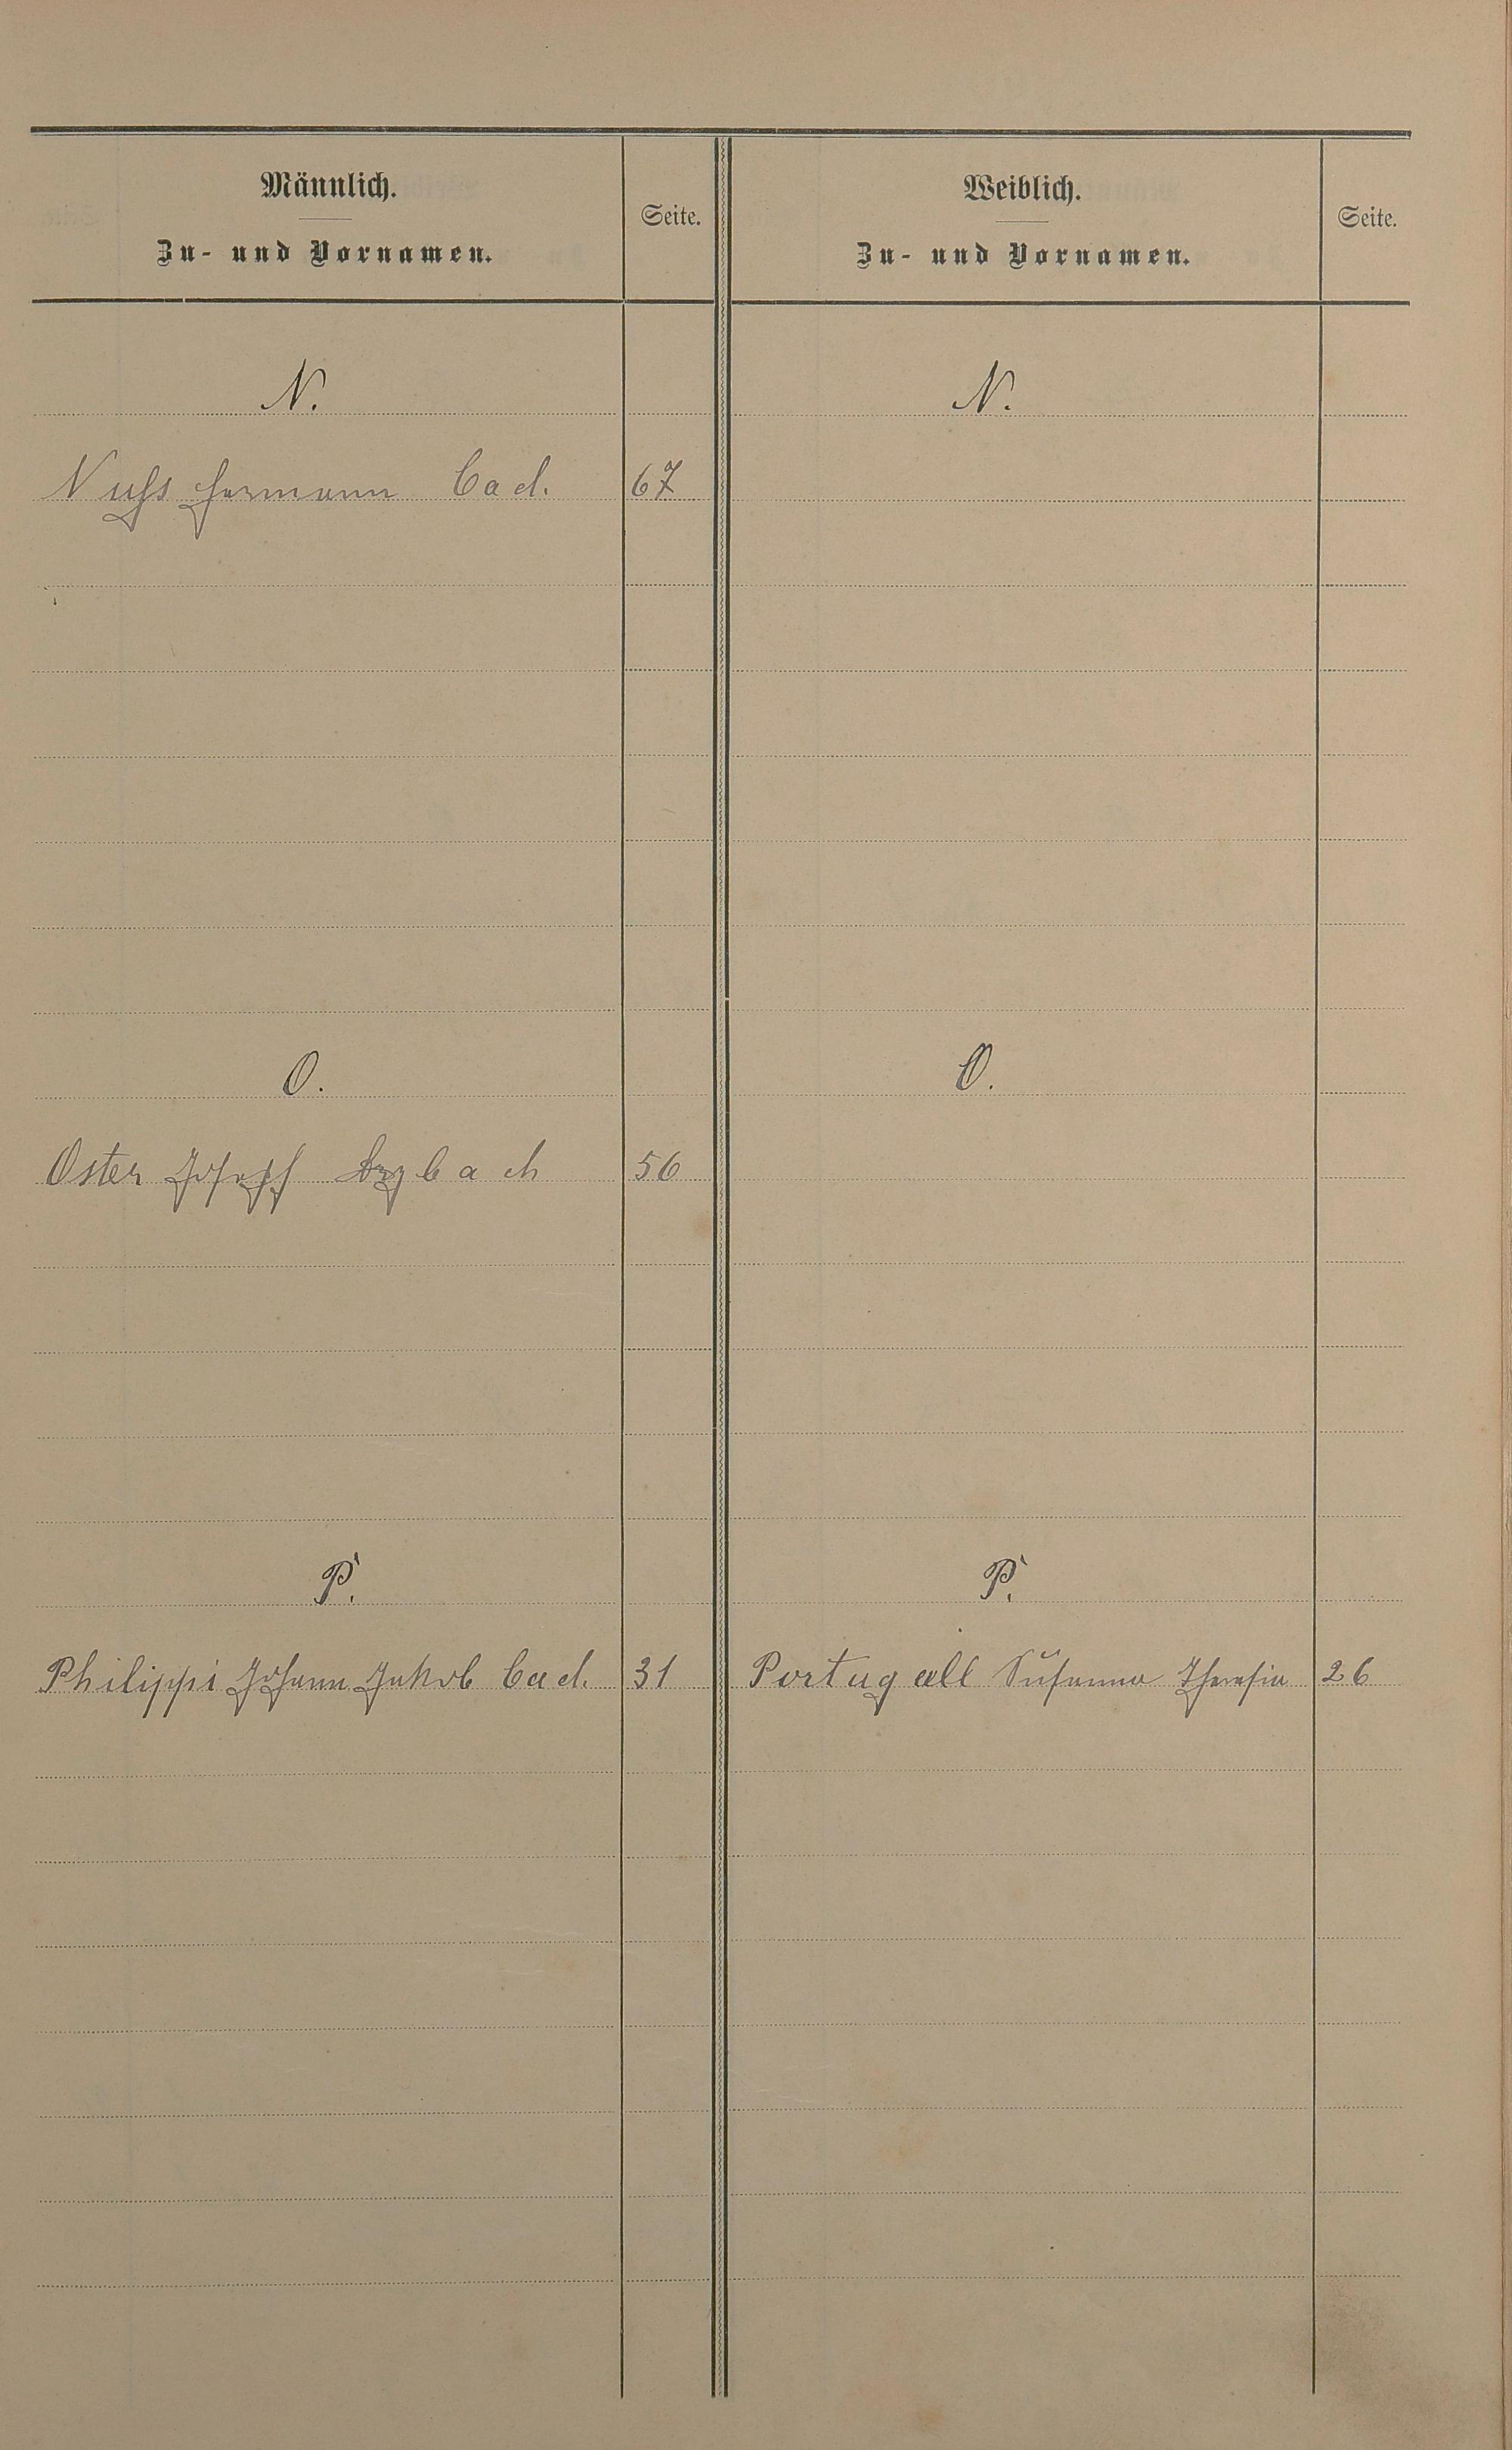 Männlich.
Zu- und Vornamen.
Seite.
Weiblich.
Zu- und Vornamen.
Seite.
N.
N.
Nuſs Hermann Cad. 67
O.
O.
Oster Joseph bach 56
P.
P.
Philippi Johann Jakob Cad. 31
Portugall Susanna Theresia 26